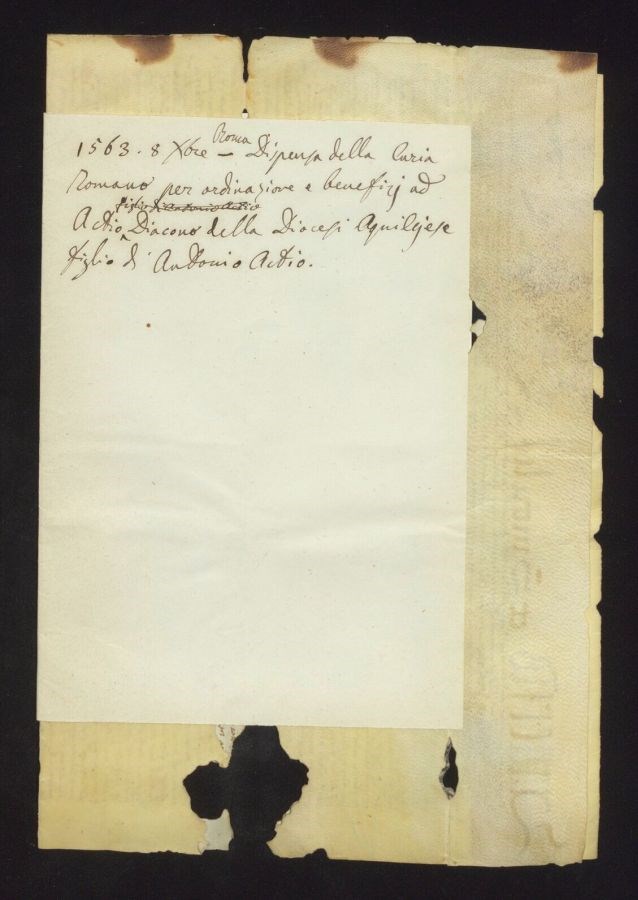 1563. 8 Xbre Roma – Dispensa della Curia
Romana per ordinazione e benefizj ad
figlio d'Antonio Actio
Actio Diacono della Diocesi Aquilejese
figlio di Antonio Actio.